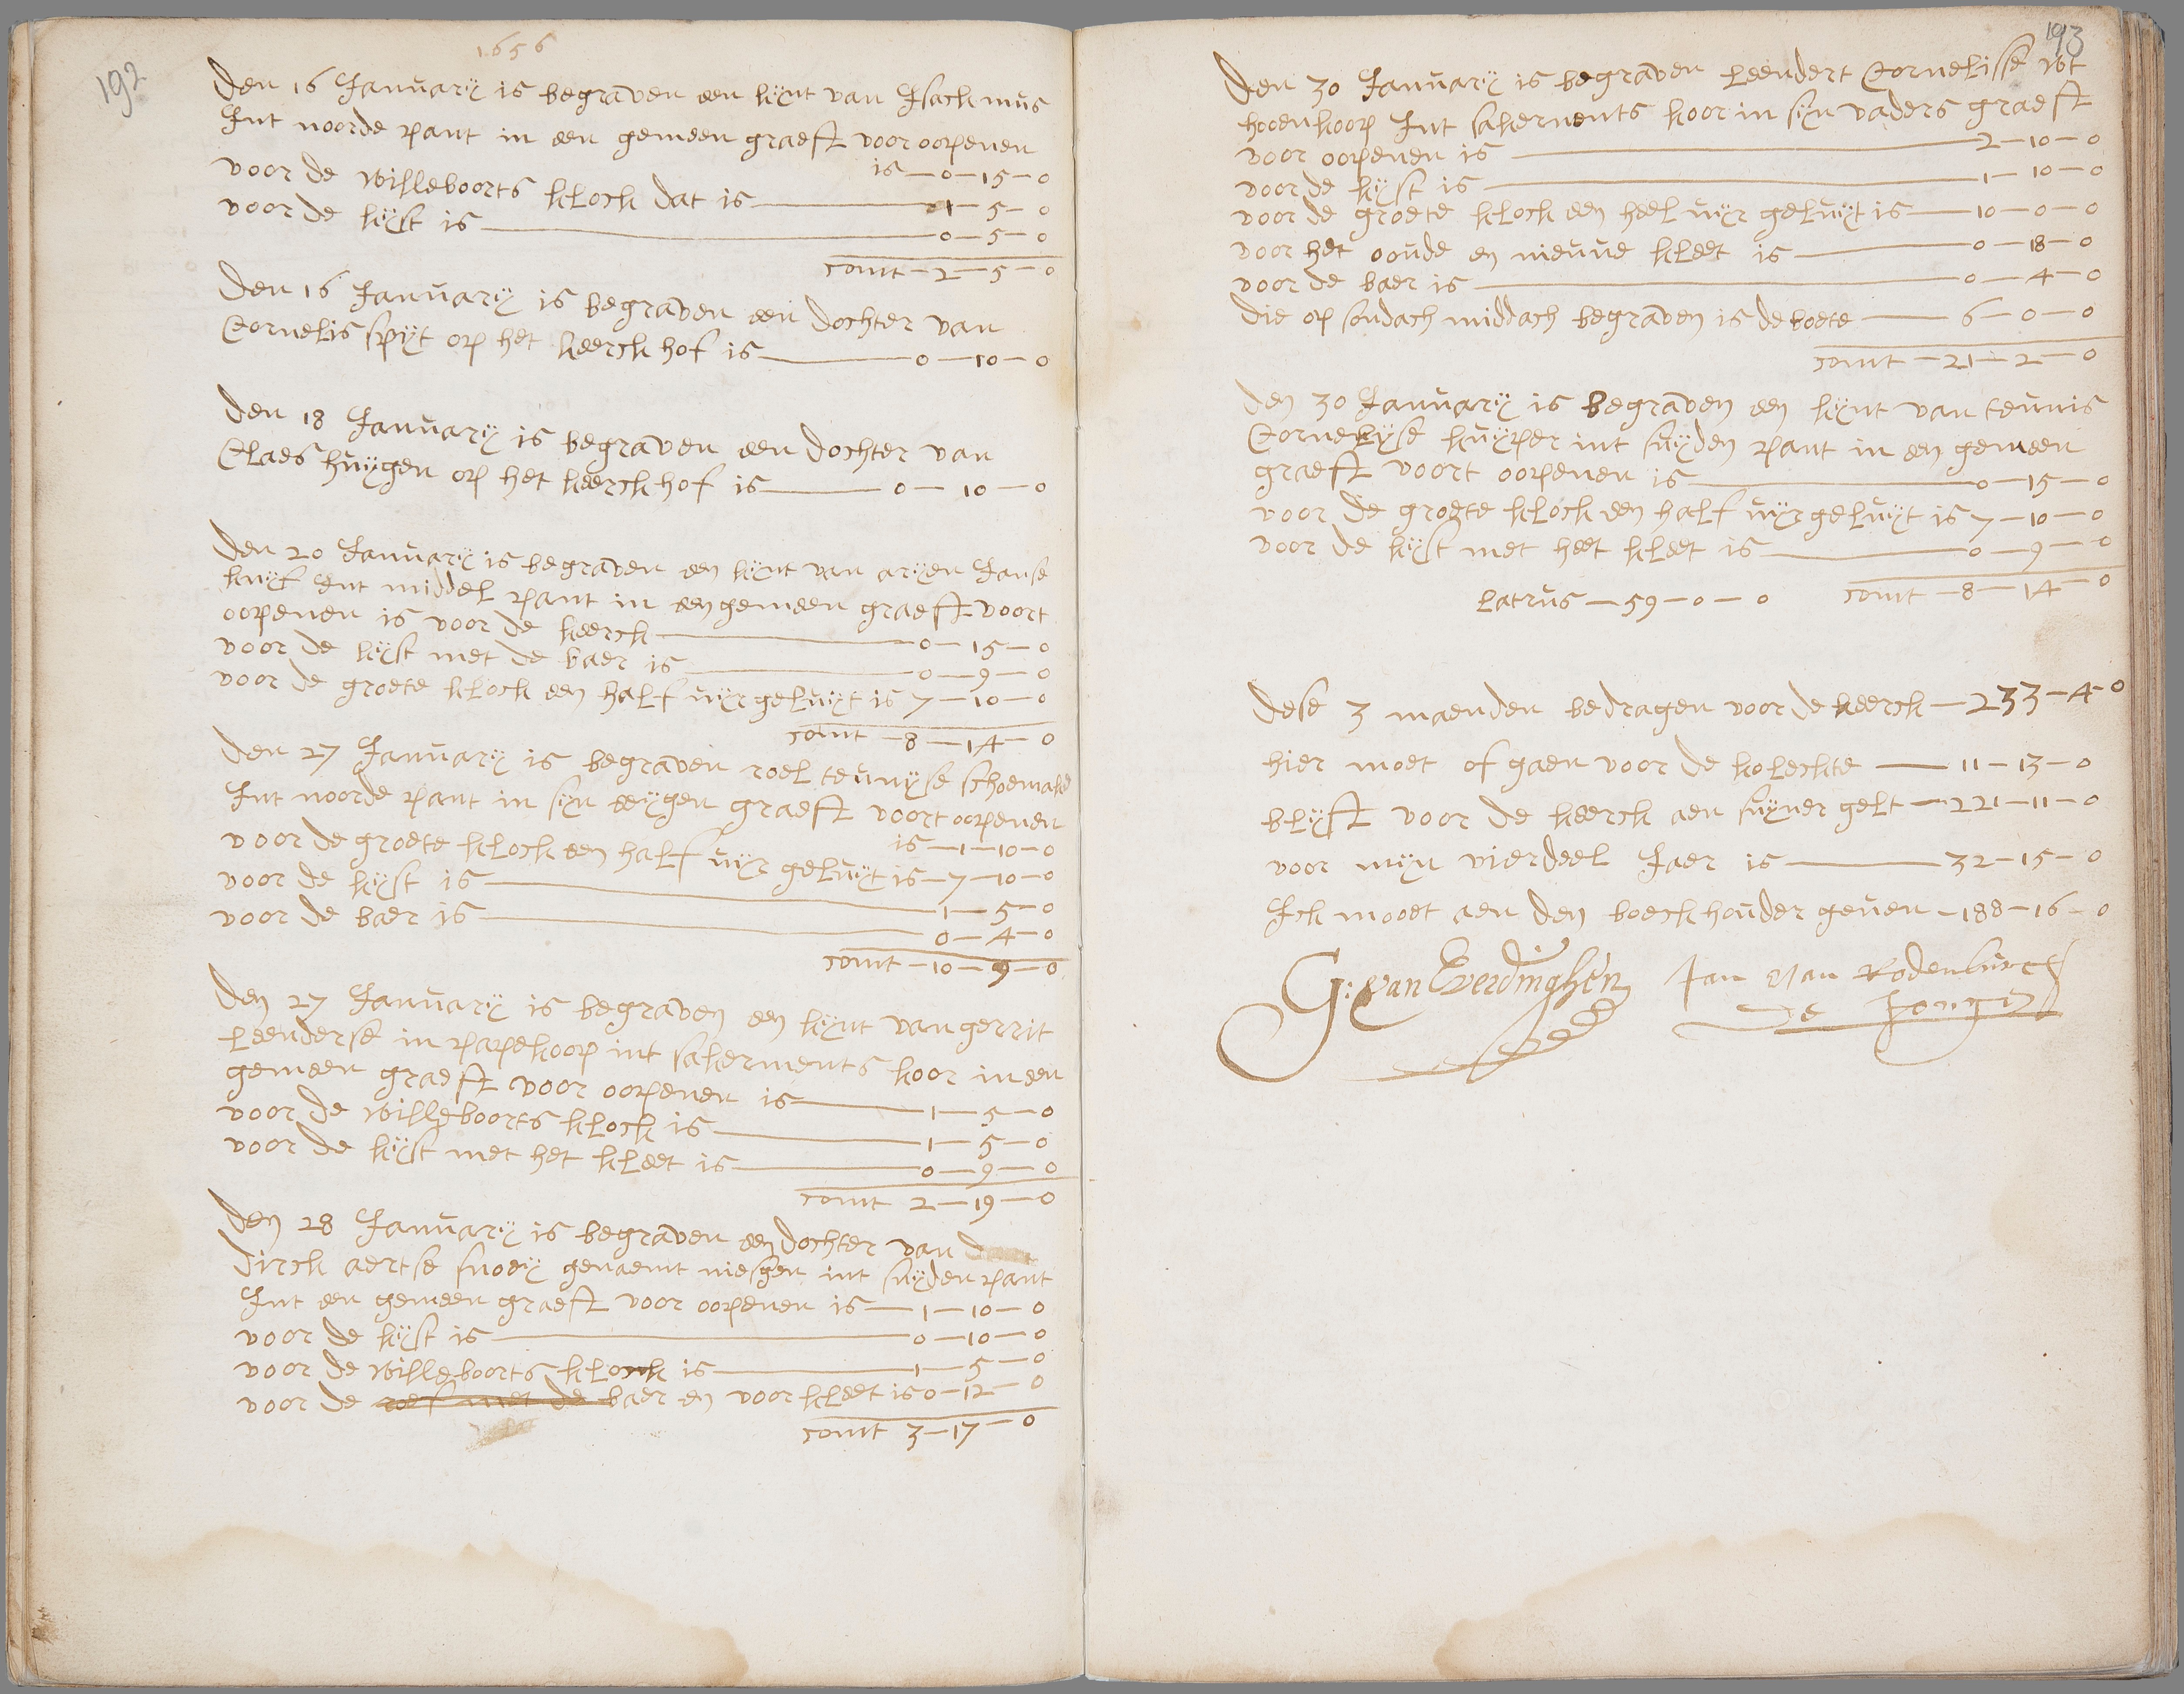 192
1656
Den 16 Januarÿ is begraven een kijnt van Jsack mus
Int noorde pant in een gemeen graeft voor oopenen
is — 0 — 15 — 0
voor de willeboorts klock dat is — 1 — 5 — 0
voor de kijst is — 0 — 5 — 0
comt — 2 — 5 — 0
Den 16 Januarÿ is begraven een dochter van
Cornelis spijt op het keerck hof is — 0 — 10 — 0
Den 18 Januarÿ is begraven een dochter van
Claes huijgen op het keerck hof is — 0 — 10 — 0
Den 20 Januarÿ is begraven een kijnt van arijen Janse
kuijf int middel pant in een gemeen graeft voort
oopenen is voor de keerck — 0 — 15 — 0
voor de kijst met de baer is — 0 — 9 — 0
voor de groete klock een half uijr geluijt is 7 — 10 — 0
comt — 8 — 14 — 0
Den 27 Januarÿ is begraven roel teunijse schoemaker
Int noorde pant in sijn eeijgen graeft voort oopenen
is — 1 — 10 — 0
voor de groete klock een half uijr geluijt is — 7 — 10 — 0
voor de kijst is — 1 — 5 — 0
voor de baer is — 0 — 4 — 0
comt — 10 — 9 — 0
Den 27 Januarÿ is begraven een kijnt van gerrit
Leenderse in papekoop int sakerments koor in een
gemeen graeft voor oopenen is — 1 — 5 — 0
voor de willeboorts klock is — 1 — 5 — 0
voor de kijst met het kleet is — 0 — 9 — 0
comt 2 — 19 — 0
Den 28 Januarÿ is begraven een dochter van
Dirck aertse snoeij genaemt niesgen int suijden pant
Int een gemeen graeft voor oopenen is — 1 — 10 — 0
voor de kijst is — 0 — 10 — 0
voor de willeboorts klock is — 1 — 5 — 0
voor de roef met de baer en voor kleet is 0 — 12 — 0
comt 3 — 17 — 0
193
Den 30 Januarÿ is begraven Leendert Cornelisse wt
hooenkoop Int sakerments koor in sijn vaders graeft
voor oopenen is — 2 — 10 — 0
voor de kijst is — 1 — 10 — 0
voor de groete klock een heel uijr geluijt is — 10 — 0 — 0
voor het ooude en nieuue kleet is — 0 — 18 — 0
voor de baer is — 0 — 4 — 0
die op sondach middach begraven is de boete — 6 — 0 — 0
comt — 21 — 2 — 0
Den 30 Januarÿ is Begraven een kijnt van teunis
Cornelijse kuijper int suijden pant in een gemeen
graeft voort oopenen is — 0 — 15 — 0
voor de groete klock een half uijr geluijt is 7 — 10 — 0
voor de kijst met heet kleet is — 0 — 9 — 0
Latrus — 59 — 0 — 0 comt — 8 — 14 — 0
Dese 3 maenden bedragen voor de keerck — 233 — 4 — 0
hier moet of gaen voor de kolechte — 11 — 13 — 0
blijft voor de keerck aen suijuer gelt — 221 — 11 — 0
voor mijn vierdeel Jaer is — 32 — 15 — 0
Jck mooet aen den boeckhouder geuen — 188 — 16 — 0
G: van Everdinghen Jan Van Rodenburch
De Jonge